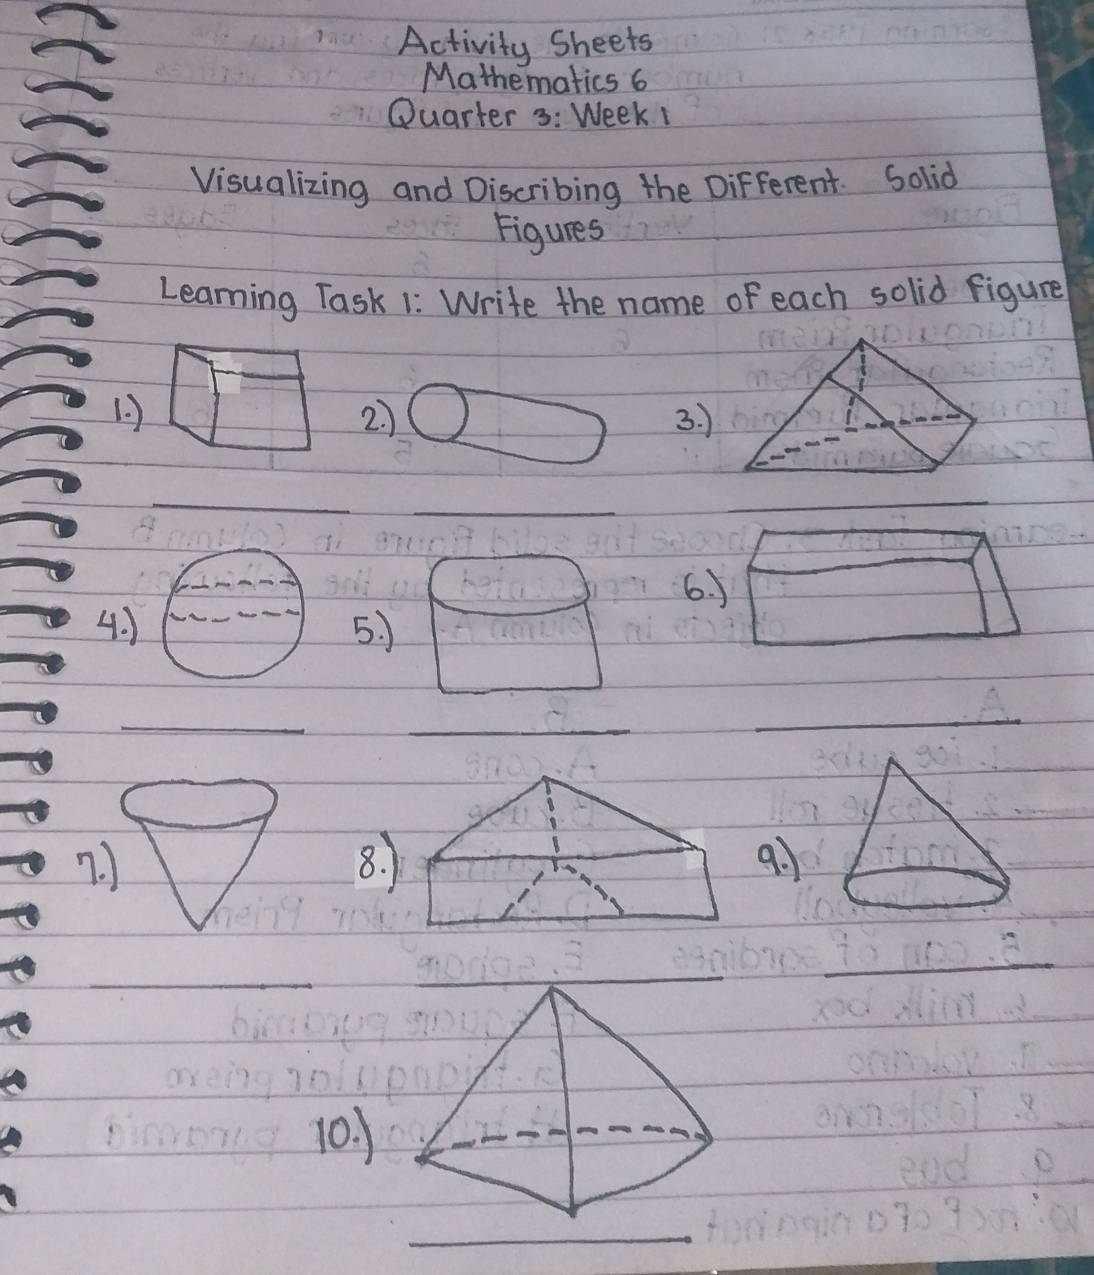 Activity Sheets
Mathematics 6
Quarter 3: Week 1
Visualizing and Discribing the Different. Solid
Figures
Learning Task 1: Write the name of each solid figure
1.) 2.) 3.)
4.) 5.) 6.)
7.) 8.) 9.)
10.)